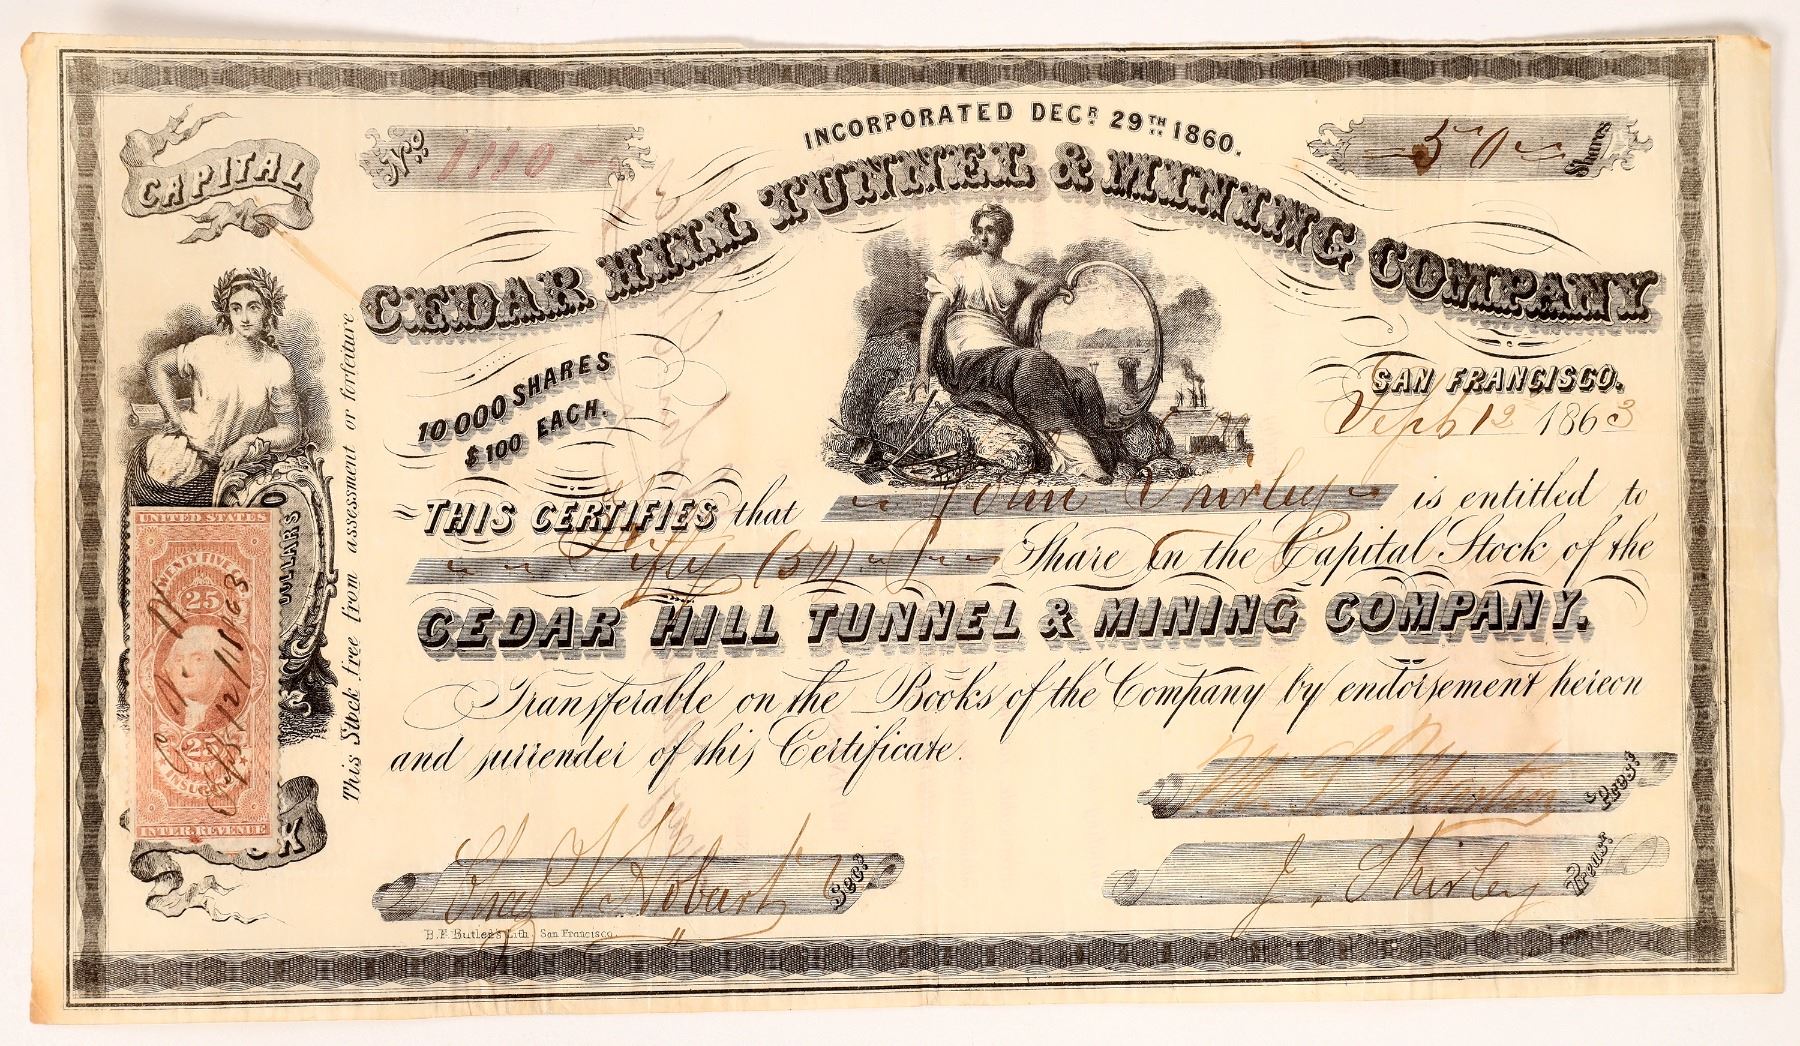 INCORPORATED DECR. 29TH 1860.
No. 1110
50 Shares
CAPITAL
CEDAR HILL TUNNEL & MINING COMPANY
10000 SHARES
$100 EACH.
SAN FRANCISCO.
Sept 12 1863
THIS CERTIFIES that John Shirley is entitled to
Fifty (50) Share in the Capital Stock of the
CEDAR HILL TUNNEL & MINING COMPANY.
Transferable on the Books of the Company by endorsement hereon
and surrender of this Certificate.
This Stock free from assessment or forfeiture
DOLLARS
UNITED STATES
TWENTY FIVE
25
25
INTER. REVENUE
Sept 12/1863
Prest
J. Shirley Treasr
Hobart Secy
B.F. Butler's Lith. San Francisco.